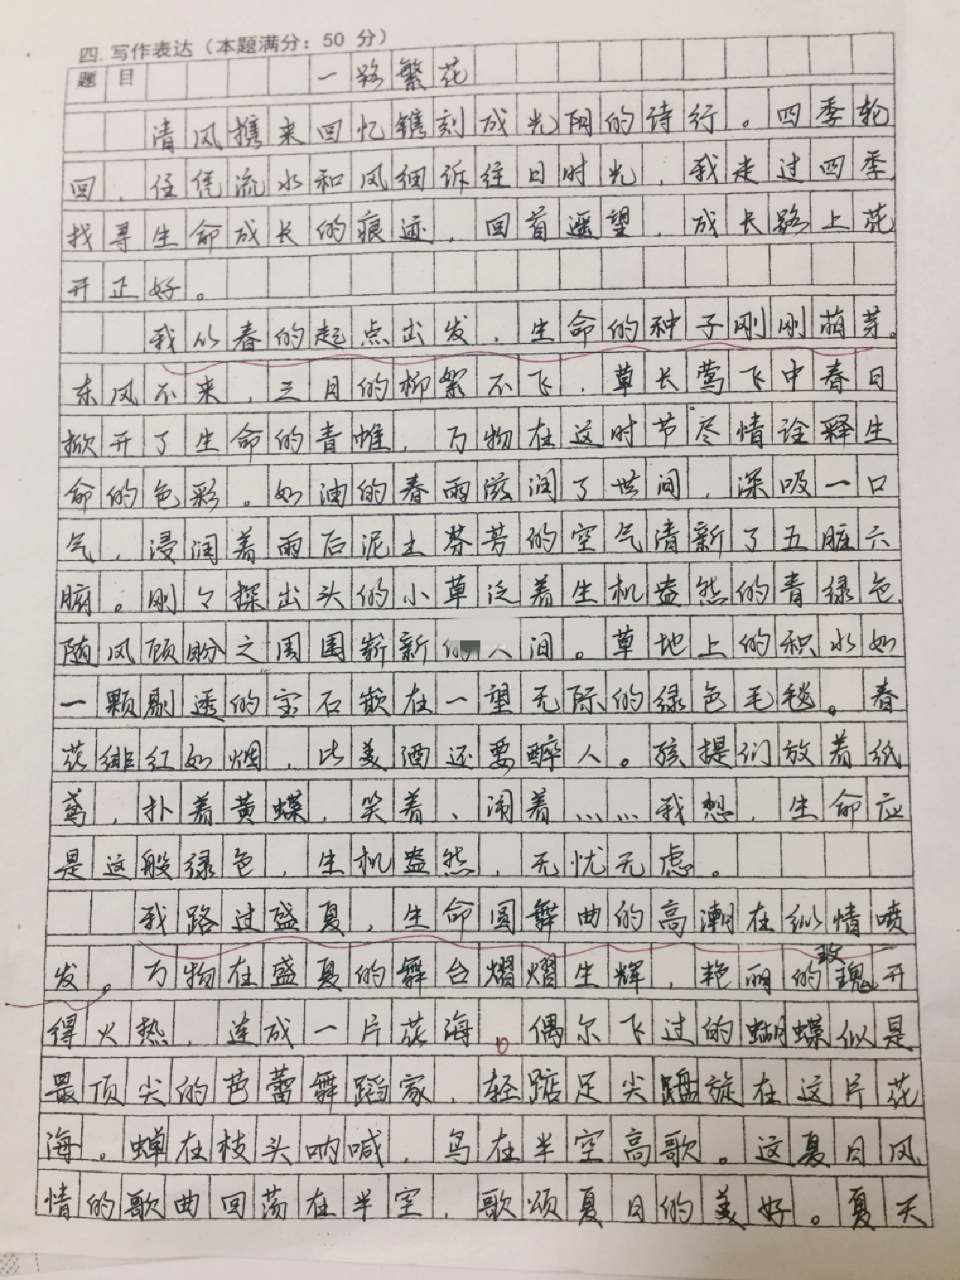 四. 写作表达（本题满分：50 分）
题目 一路繁花
清风携来回忆镌刻成光阴的诗行。四季轮
回，任凭流水和风细诉往日时光，我走过四季
找寻生命成长的痕迹，回首遥望，成长路上花
开正好。
我从春的起点出发，生命的种子刚刚萌芽。
东风不来，三月的柳絮不飞，草长莺飞中春日
掀开了生命的青帷，万物在这时节尽情诠释生
命的色彩。如油的春雨滋润了世间，深吸一口
气，浸润着雨后泥土芬芳的空气清新了五脏六
腑。刚々探出头的小草泛着生机盎然的青绿色，
随风顾盼之周围崭新的人间。草地上的积水如
一颗剔透的宝石嵌在一望无际的绿色毛毯。春
花绯红如烟，比美酒还要醉人。孩提们放着纸
鸢，扑着黄蝶，笑着、闹着……我想，生命应
是这般绿色，生机盎然，无忧无虑。
我路过盛夏，生命圆舞曲的高潮在纵情喷
发。万物在盛夏的舞台熠熠生辉，艳丽的玫瑰开
得火热，连成一片花海。偶尔飞过的蝴蝶似是
最顶尖的芭蕾舞蹈家，轻踮足尖蹁旋在这片花
海。蝉在枝头呐喊，鸟在半空高歌。这夏日风
情的歌曲回荡在半空，歌颂夏日的美好。夏天